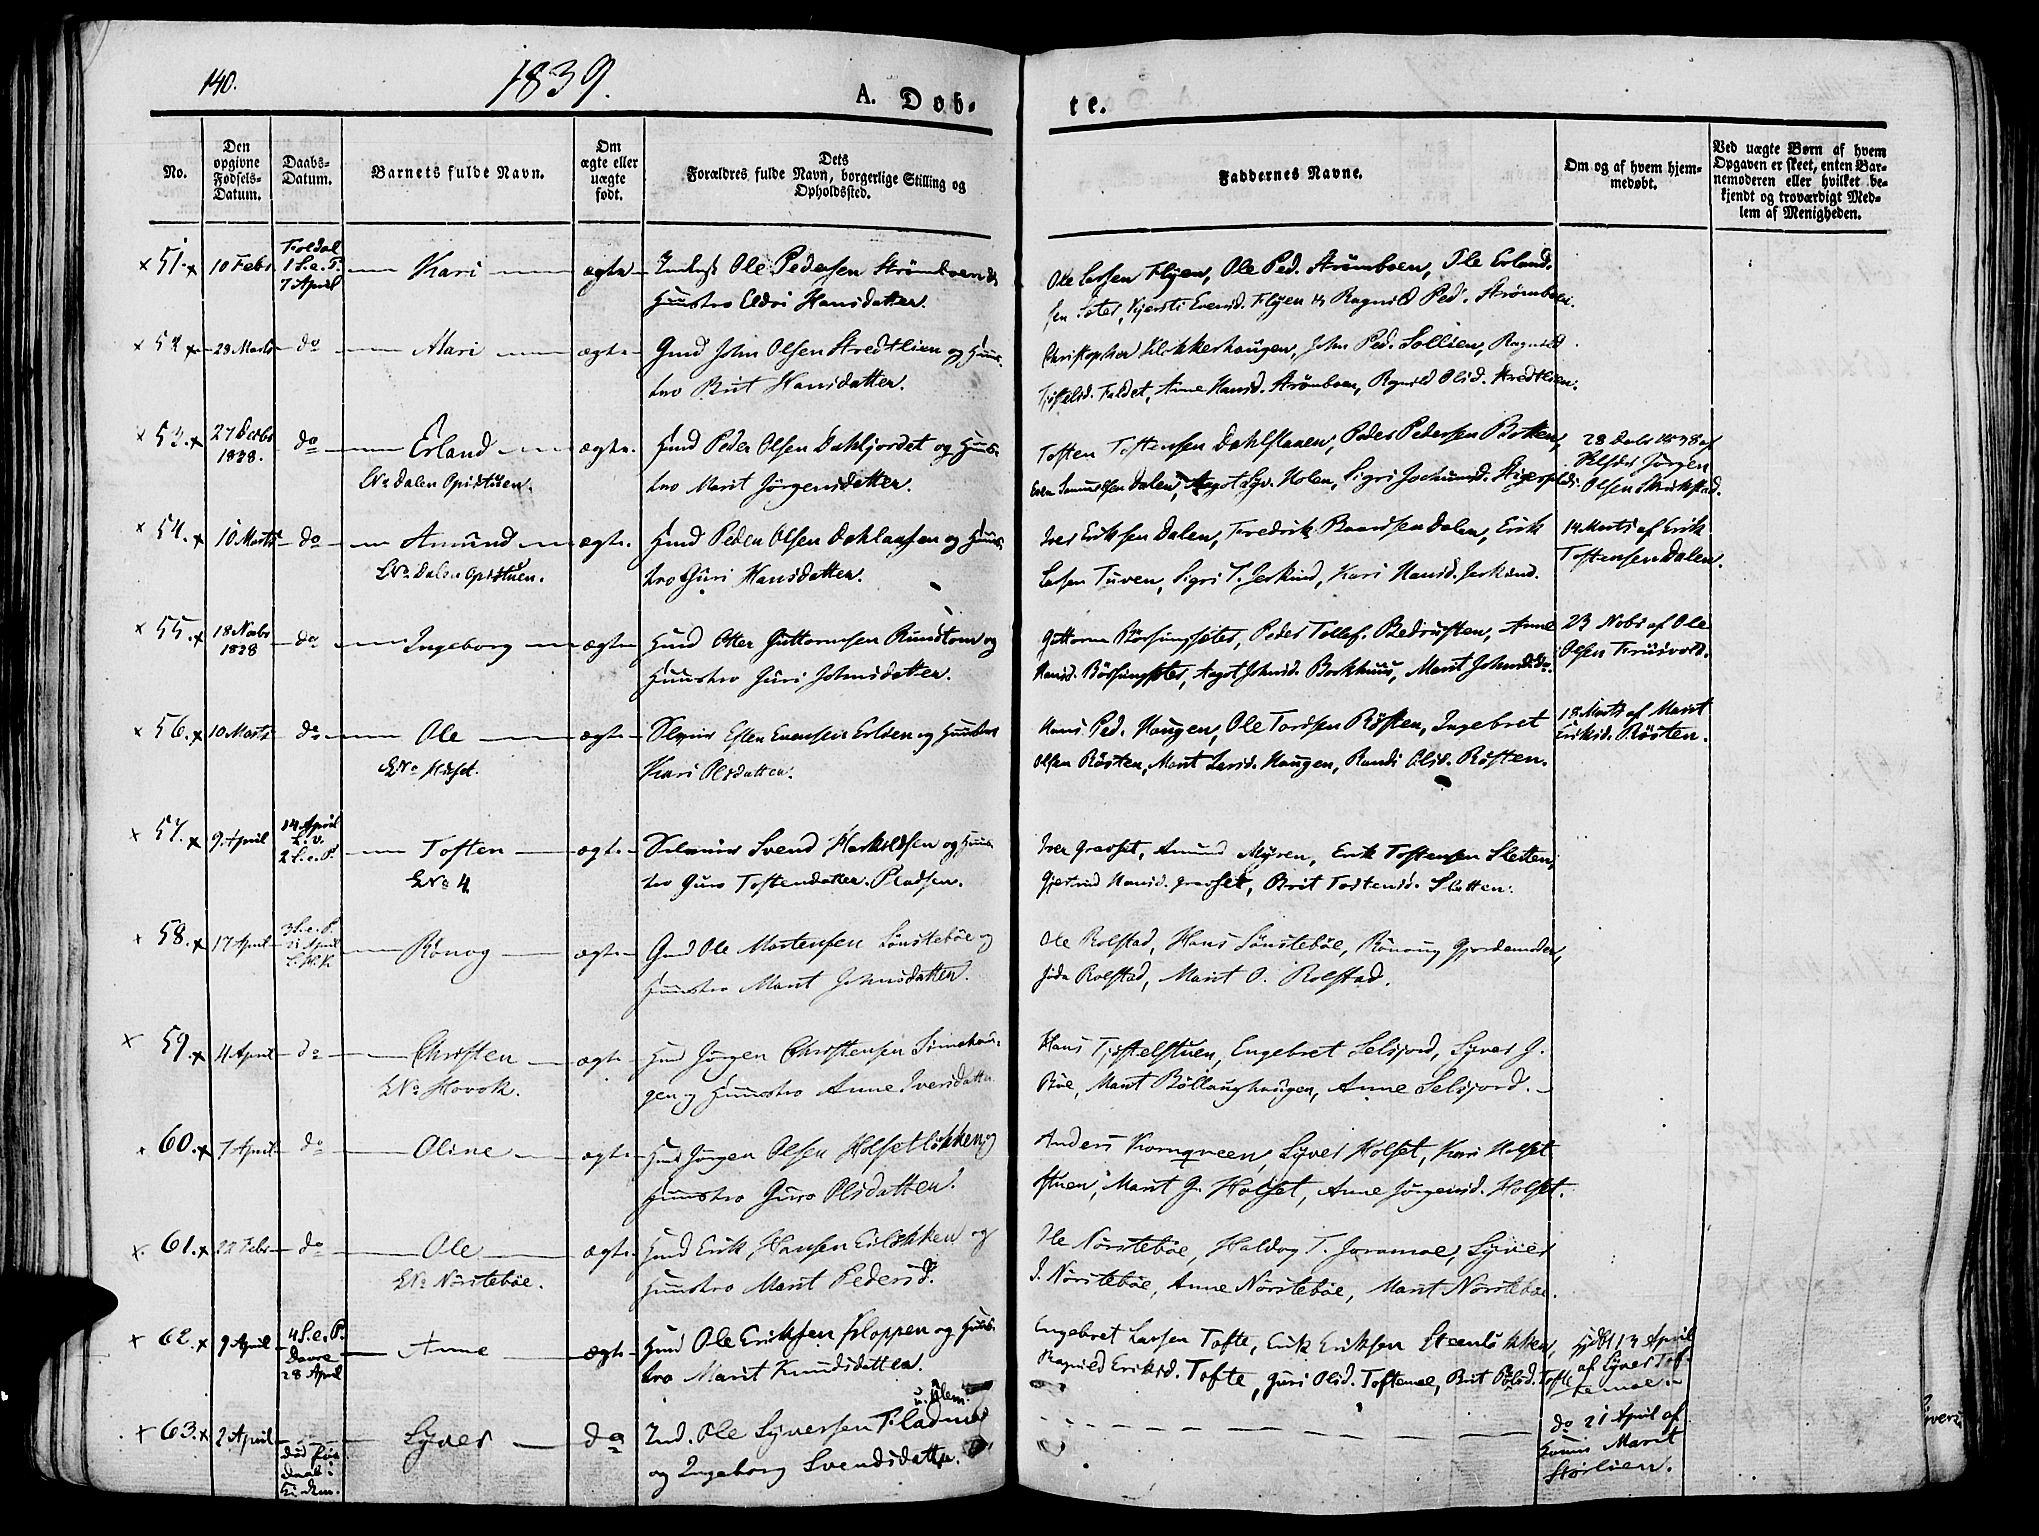 140.
1839.
A. Døb-
te.
No.
Den opgivne Fødsels-Datum.
Daabs-Datum.
Barnets fulde Navn.
Om ægte eller uægte født.
Dets Forældres fulde Navn, borgerlige Stilling og Opholdssted.
Faddernes Navne.
Om og af hvem hjem-medøbt.
Ved uægte Børn af hvem Opgaven er skeet, enten Bar-nemoderen eller hvilket be-kjendt og troværdigt Med-lem af Menigheden.
51. 10 Febr Foldal 1 S. e. P. 7 April Kari ægte Ole Pedersen Strömboen
Huustro Eldri Hansdatter.
Ole Larsen Flyen, Ole Ped. Strömboen, Ole Erland-
sen Seter, Kjersti Evensd. Flyen og Ragnild Ped. Strömboen.
52. 28 Marts do Mari ægte Gmd John Olsen Stredtlien og Huus-
tro Brit Hansdatter.
Christopher Klokkerhaugen, John Ped. Sollien, Ragnild
Faldet, Anne Hansd. Strömboen, Ragnild Olsd. Stredtlien.
53. 27 Decbr 1838. do Erland ægte Huusmd Peder Olsen Dahljordet og Huus-
LNo Dalen Opistuen.
tro Marit Jörgensdatter.
Tosten Tostensen Dahlslaaen, Peder Pedersen Botten,
Even Samuelsen Dalen, Aagot Syv. Holen, Sigri Jochumsd.
28 Decbr 1838 af
Jörgen
Olsen
54. 10 Marts do Amund ægte Huusmd Peder Olsen Dahlaasen og Huus-
LNo Dalen Opistuen.
tro Guri Hansdatter.
Iver Eriksen Dalen, Fredrik Baardsen Dalen, Erik
Larsen Tuven, Sigri T. Jerkind, Kari Hansd. Jerkind.
14 Marts af Erik
Tostensen Dalen.
55. 18 Novbr 1838 do Ingeborg ægte Huusmd Otter Guttormsen Rundtom og
Huustro Guri Johnsdatter.
Guttorm Börsungseter, Peder Tollef. Bedrusten, Anne
Hansd. Börsungseter, Aagot Johnsd. Brekkhuus, Marit Johnsd. do.
23 Nobr af Ole
Olsen
56. 10 Marts do Ole ægte Selveier Esten Evensen Erlien og Huustro
LNo Huset.
Kari Olsdatter.
Hans Ped. Haugen, Ole Tordsen Rösten, Ingebret
Olsen Rösten, Marit Larsd. Haugen, Randi Olsd. Rösten.
18 Marts af Marit
Eriksd. Rösten.
57. 9 April 14 April L. v. 2 S. e. P. Tosten ægte Selveier Svend Haskoldsen og Huus-
LNo 4
tro Guro Tostendatter. Pladsen.
Iver Gravset, Amund Myren, Erik Tostensen Sletten,
Gjertrud Hansd. Gravset, Brit Tostensd. Sletten.
58. 17 April 3 S. e. P. 21 April L. H. K. Rönog ægte Gmd Ole Mortensen Sönstebøe og
Huustro Marit Johnsdatter.
Ole Rolstad, Hans Sönstebøe, Rönoug Gjordemoder,
Rolstad, Marit O. Rolstad.
59. 4 April do Christen ægte Hmd Jörgen Christensen Sinnehau-
LNo Hovok.
gen og Huustro Anne Iversdatter
Hans Tjöstelstuen, Engebret Selsjord, Syver J.
Böe, Marit Böllaughaugen, Anne Selsjord.
60. 7 April do Oline ægte Hmd Jörgen Olsen Holsetlökken og
Huustro Guro Olsdatter.
Anders Kornqveen, Syver Holset, Kari Holset-
stuen, Marit G. Holset, Anne Jörgensd. Holset.
61. 22 Febr do Ole ægte Hmd Erik Hansen Eilökken og
LNo Nörstebøe.
Huustro Marit Pedersd.
Ole Nörstebøe, Haldog T. Joramoe, Syver
J. Nörstebøe, Anne Nörstebøe, Marit Nörstebøe.
62. 9 April 4 S. e. P. Dovre 28 April Anne ægte Hmd Ole Eriksen Kloppen og Huus-
tro Marit Knudsdatter.
Engebret Larsen Tofte, Erik Eriksen Steenlökken,
Ragnild Eriksd. Tofte, Guri Olsd. Toftemoe, Brit Polsd. Tofte
Hjdbt 13 April
af Syver Tof-
temoe.
63. 2 April död før daab: Ei dem. Syver do Ind. Ole Syversen Pladmo
og Ingeborg Svendsdatter.
do 21 April af
Konis Marit
Störlien.